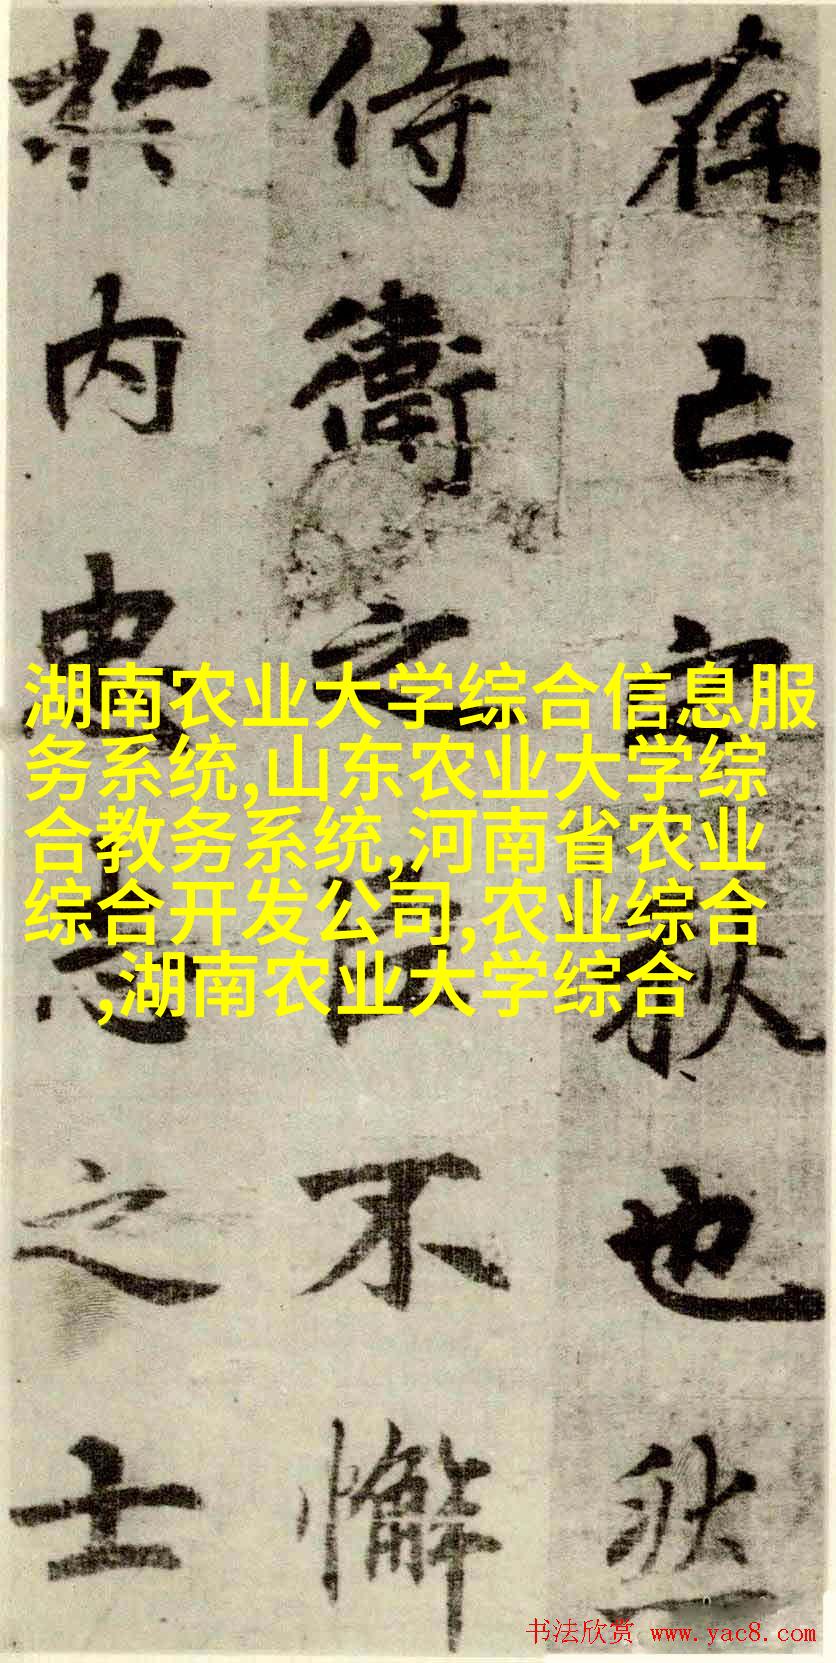 存亡之秋也然
侍衛之臣不懈
於内忠志之士
湖南农业大学综合信息服
务系统,山东农业大学综
合教务系统,河南省农业
综合开发公司,农业综合
,湖南农业大学综合
书法欣赏 www.yac8.com